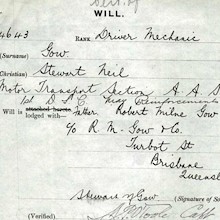 WILL.
4643 RANK Driver Mechanic
(Surname) Gow.
(Christian) Stewart Neil
Motor Transport Section A A S
1st D.S.C. May Reinforcements
Will is attached hereto Father Robert Milne Gow
lodged with—
c/o R. M. Gow & Co.
Turbot St
Brisbane
Queensl
(Signature of So
Stewart N Gow
(Verified)